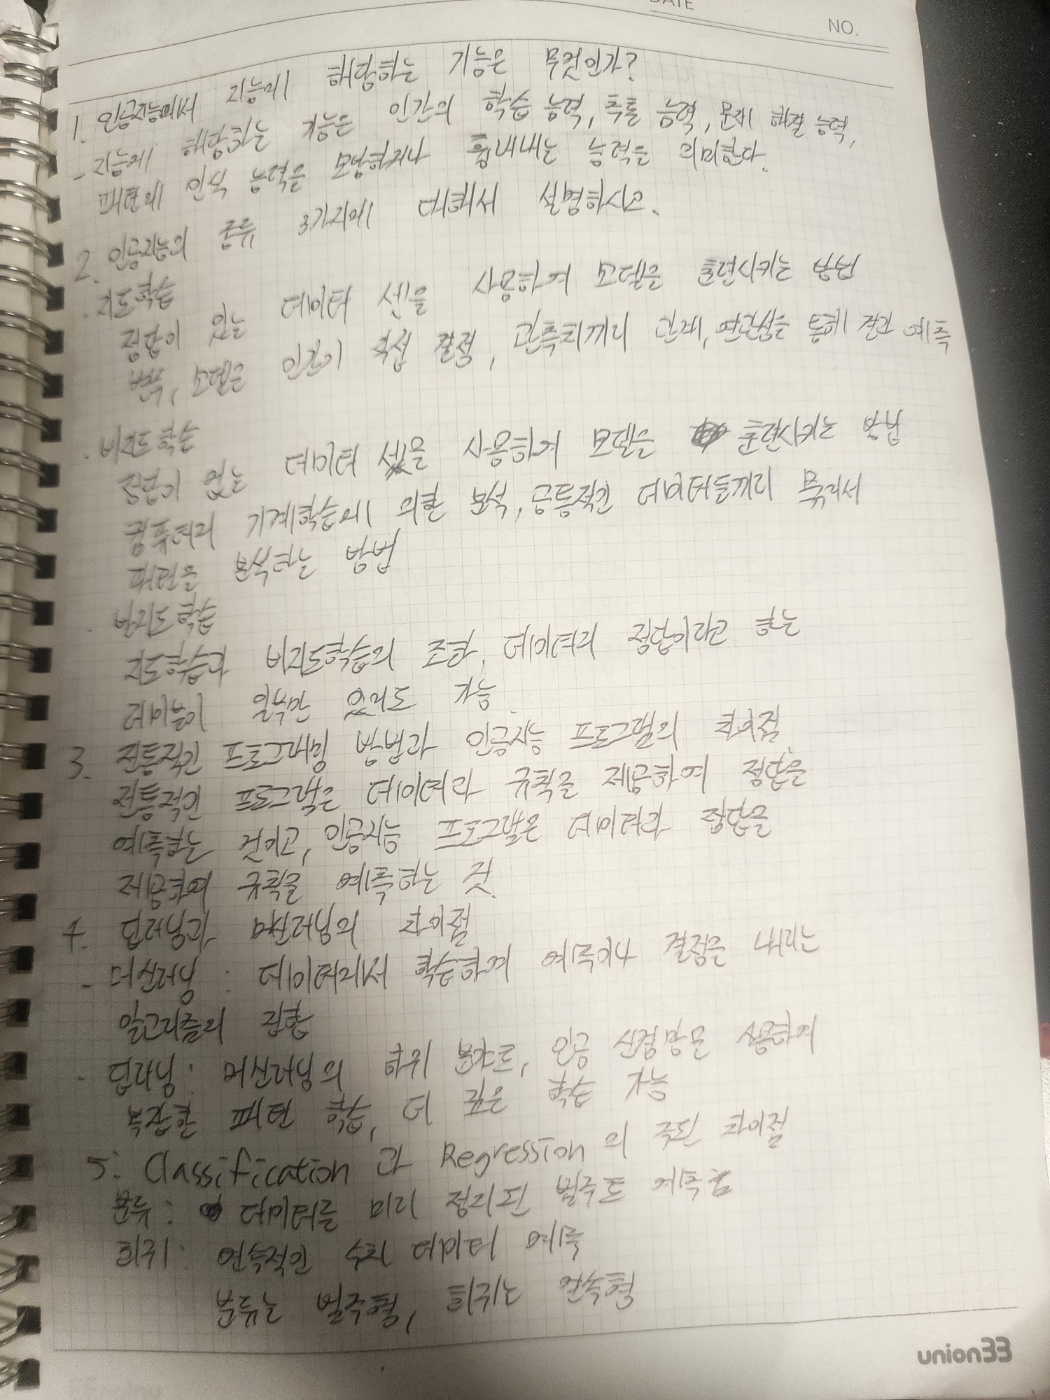 DATE
NO.
1. 인공지능에서 지능에 해당하는 기능은 무엇인가?
- 지능에 해당하는 기능은 인간의 학습 능력, 추론 능력, 문제 해결 능력,
패턴의 인식 능력을 모방하거나 흉내내는 능력을 의미한다.
2. 인공지능의 종류 3가지에 대해서 설명하시오.
· 지도학습
정답이 있는 데이터 셋을 사용하여 모델을 훈련시키는 방법
변수, 모델은 인간이 직접 결정, 관측치끼리 관계, 연관성을 통해 결과 예측
· 비지도 학습
정답이 없는 데이터 셋을 사용하여 모델을 훈련시키는 방법
기계학습에 의한 분석, 공통적인 데이터들끼리 묶어서
패턴을 분석하는 방법
· 반지도 학습
지도학습과 비지도학습의 조합, 데이터의 정답이라고 하는
일부만 있어도 가능
3. 전통적인 프로그래밍 방법과 인공지능 프로그램의 차이점
전통적인 프로그램은 데이터와 규칙을 제공하여 정답을
예측하는 것이고, 인공지능 프로그램은 데이터와 정답을
제공하여 규칙을 예측하는 것
4. 딥러닝과 머신러닝의 차이점
- 머신러닝 : 데이터에서 학습하여 예측이나 결정을 내리는
알고리즘의 집합
· 딥러닝 : 머신러닝의 하위 분야로, 인공 신경망을 사용하여
복잡한 패턴 학습, 더 깊은 학습 가능
5. Classification 과 Regression 의 주된 차이점
분류 : 데이터를 미리 정의된 범주로 예측
회귀 : 연속적인 수치 데이터 예측
분류는 범주형, 회귀는 연속형
union33